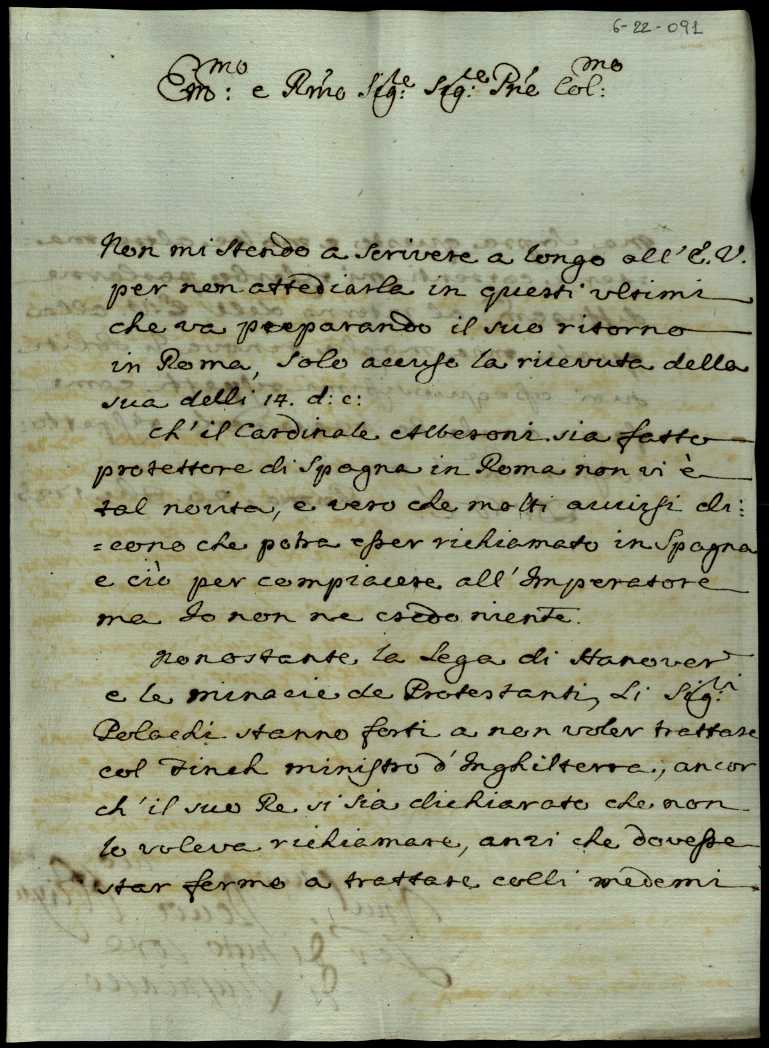 6-22-091
Em:mo e Rmo Sig:re Sig:re Pne Col:mo
Non mi stendo a scrivere a longo all'E. V.
per non attediarla in questi ultimi
che va preparando il suo ritorno
in Roma, solo accuso la ricevuta della
sua delli 14. d: c:
ch'il Cardinale Alberoni sia fatto
protettore di Spagna in Roma non vi è
tal novita, e vero che molti avvisi di:
=cono che potra esser richiamato in Spagna
e ciò per compiacere all'Imperatore
ma Io non ne credo niente.
Nonostante la Lega di Hanover
e le minacie de Protestanti, Li Sig:ri
Polachi stanno forti a non voler trattare
col Finch ministro d'Inghilterra, ancor
ch'il suo Re si sia dichiarato che non
lo voleva richiamare, anzi che dovesse
star fermo a trattare colli medemi